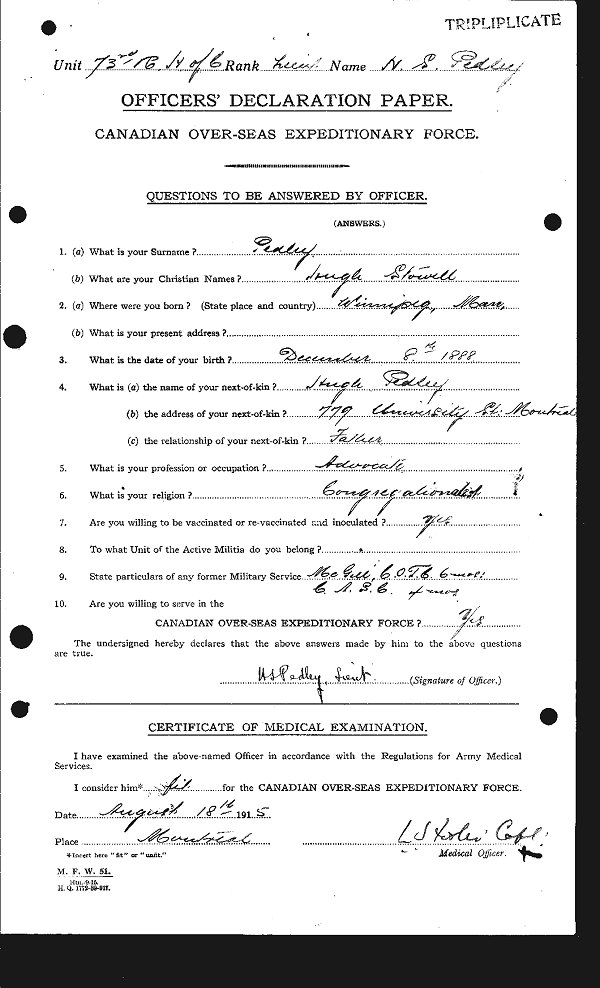 TRIPLIPLICATE
Unit 73rd R H of C Rank Lieut Name H. S. Pedley
OFFICERS' DECLARATION PAPER.
CANADIAN OVER-SEAS EXPEDITIONARY FORCE.
QUESTIONS TO BE ANSWERED BY OFFICER.
(ANSWERS.)
1. (a) What is your Surname? Pedley
(b) What are your Christian Names? Hugh Stowell
2. (a) Where were you born? (State place and country) Winnipeg, Man,
(b) What is your present address?
3. What is the date of your birth? December 8th 1888
4. What is (a) the name of your next-of-kin? Hugh Pedley
(b) the address of your next-of-kin? 779 University St: Montreal
(c) the relationship of your next-of-kin? Father
5. What is your profession or occupation? Advocate
6. What is your religion? Congregationalist
7. Are you willing to be vaccinated or re-vaccinated and inoculated? Yes
8. To what Unit of the Active Militia do you belong?
9. State particulars of any former Military Service McGill C.O.T.C. 6 mos:
C. A. S. C. 4 mos
10. Are you willing to serve in the
CANADIAN OVER-SEAS EXPEDITIONARY FORCE? Yes
The undersigned hereby declares that the above answers made by him to the above questions
are true.
HSPedley, Lieut. (Signature of Officer.)
CERTIFICATE OF MEDICAL EXAMINATION.
I have examined the above-named Officer in accordance with the Regulations for Army Medical
Services.
I consider him* fit for the CANADIAN OVER-SEAS EXPEDITIONARY FORCE.
Date August 18th 1915
Place Montreal
L S Foster Capt.
*Insert here "fit" or "unfit."
Medical Officer.
M. F. W. 51.
H. Q. 1772-39-917.